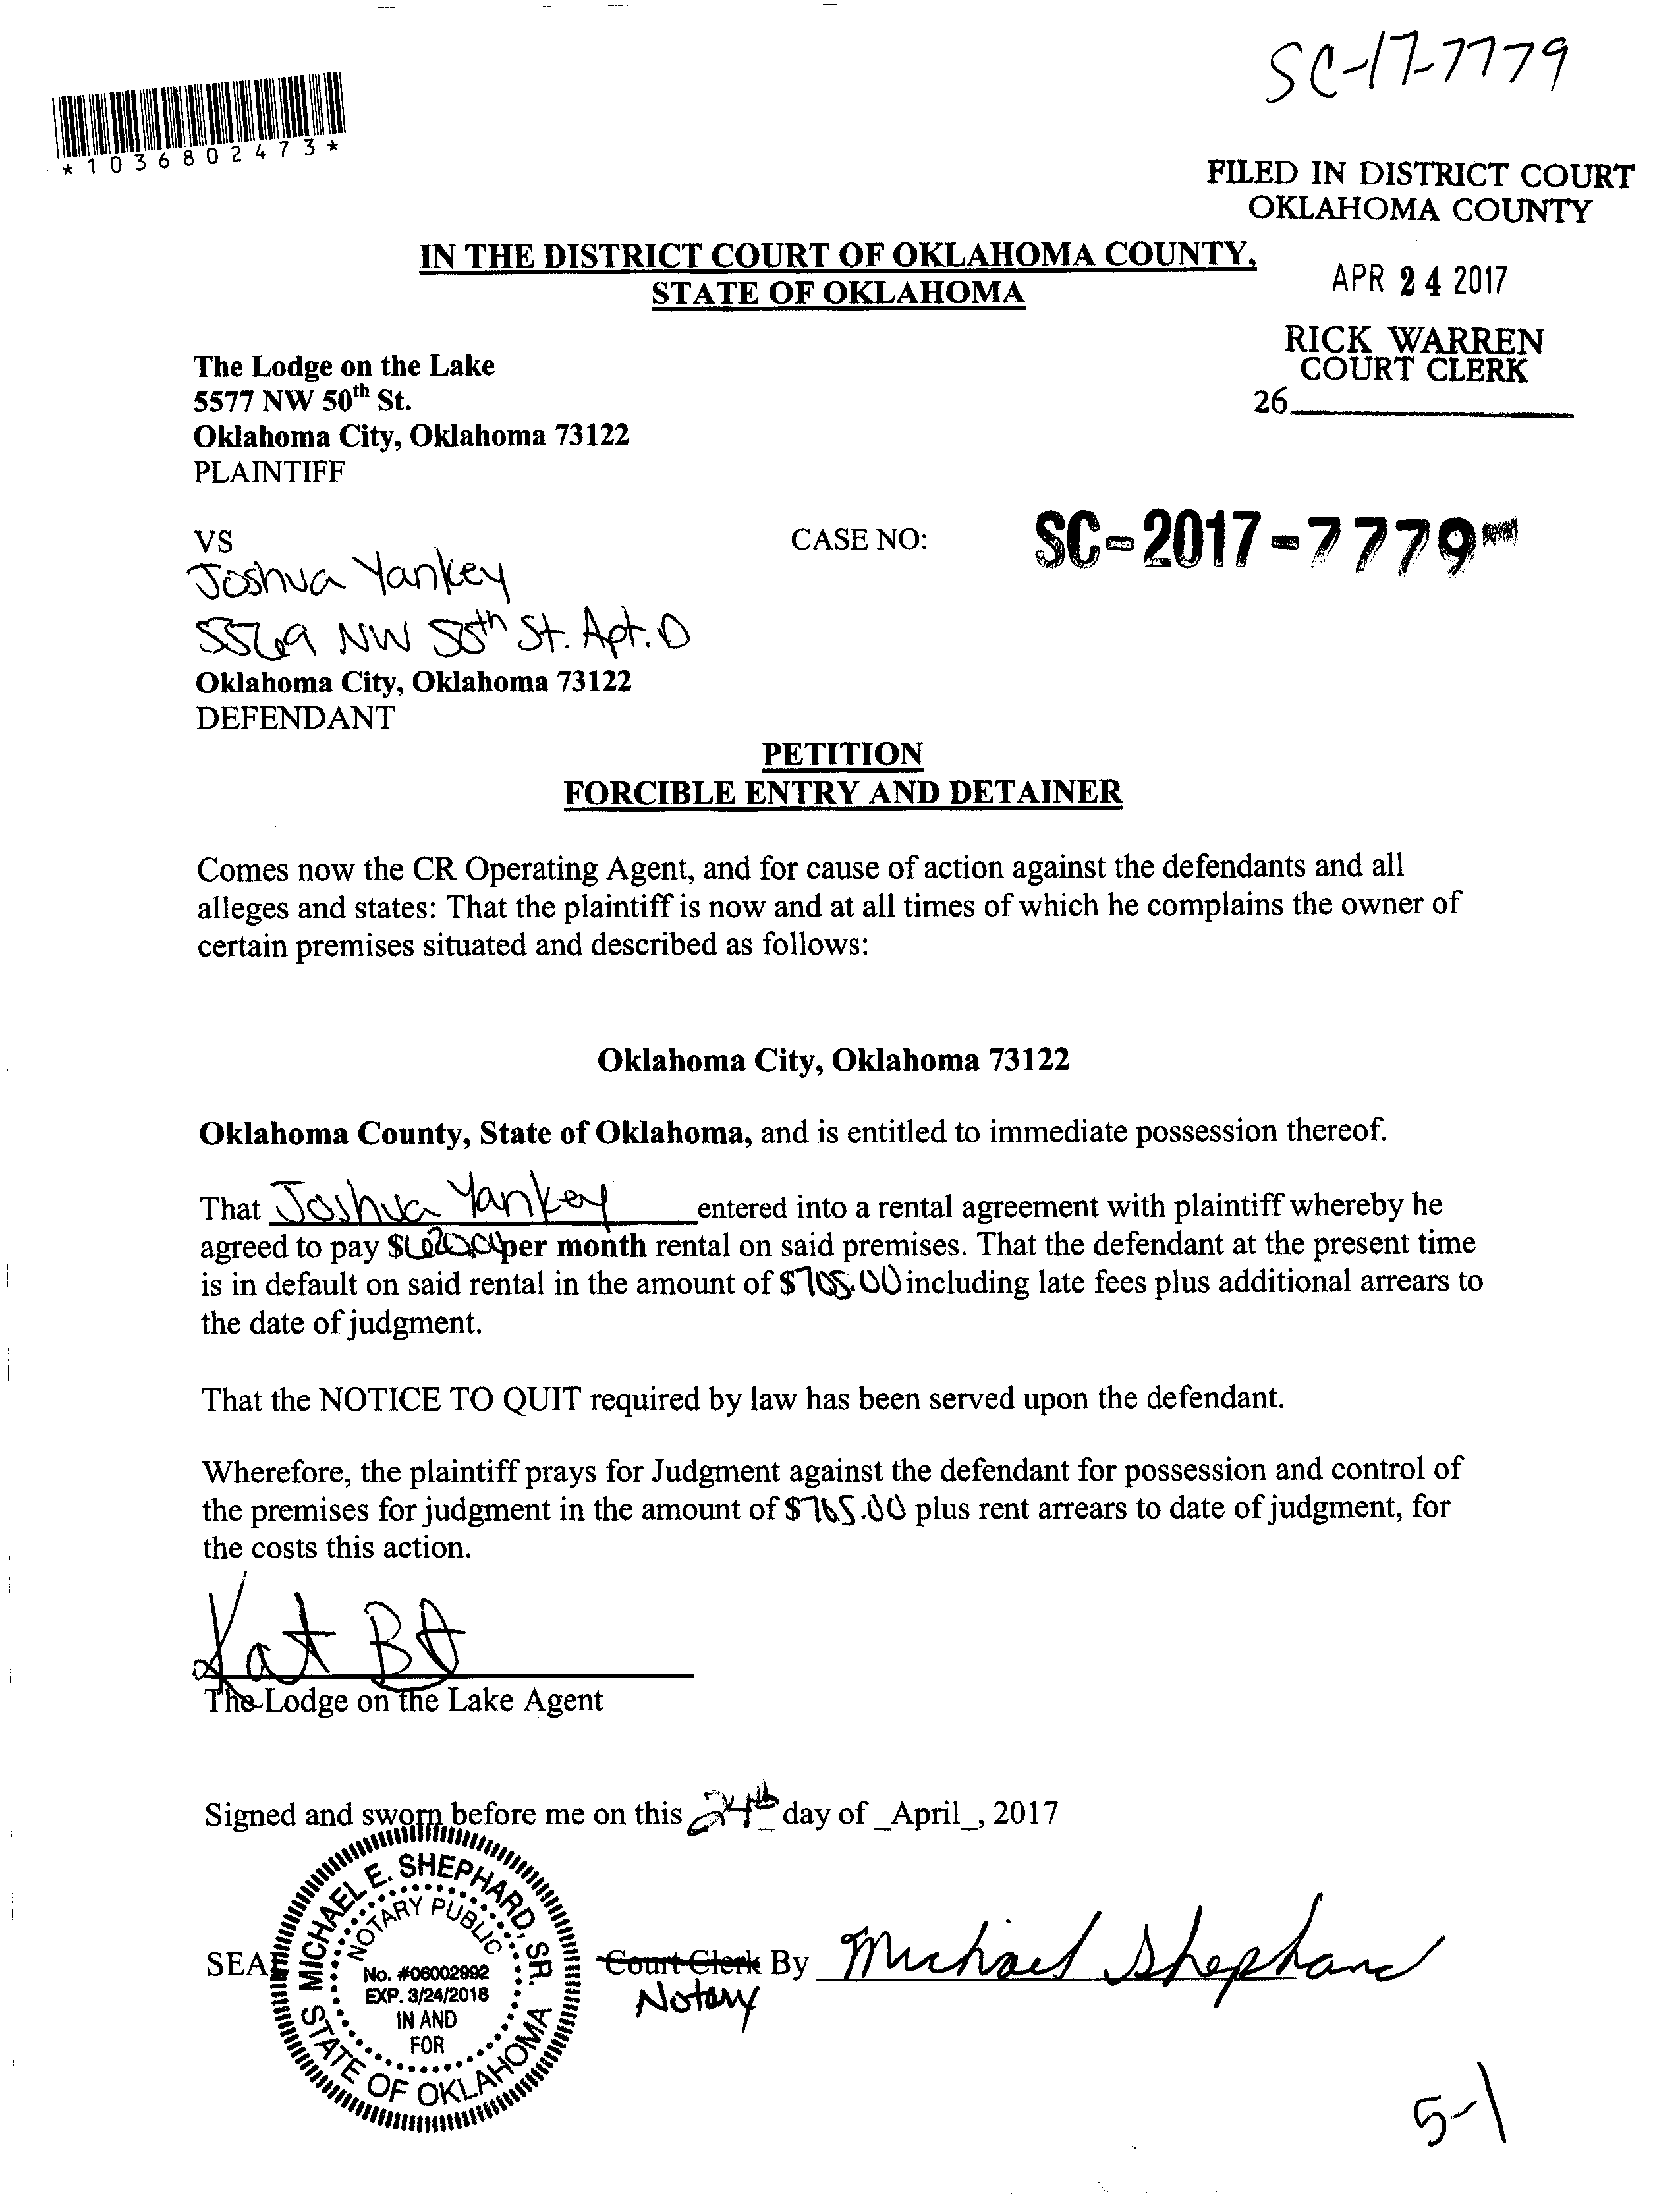 SC-17-7779
*1036802473*
FILED IN DISTRICT COURT
OKLAHOMA COUNTY
IN THE DISTRICT COURT OF OKLAHOMA COUNTY,
STATE OF OKLAHOMA
APR 24 2017
RICK WARREN
COURT CLERK
26
The Lodge on the Lake
5577 NW 50th St.
Oklahoma City, Oklahoma 73122
PLAINTIFF
VS
CASE NO: SC-2017-7779
Joshua Yankey
5569 NW 50th St. Apt. D
Oklahoma City, Oklahoma 73122
DEFENDANT
PETITION
FORCIBLE ENTRY AND DETAINER
Comes now the CR Operating Agent, and for cause of action against the defendants and all
alleges and states: That the plaintiff is now and at all times of which he complains the owner of
certain premises situated and described as follows:
Oklahoma City, Oklahoma 73122
Oklahoma County, State of Oklahoma, and is entitled to immediate possession thereof.
That Joshua Yankey entered into a rental agreement with plaintiff whereby he
agreed to pay per month rental on said premises. That the defendant at the present time
is in default on said rental in the amount of including late fees plus additional arrears to
the date of judgment.
That the NOTICE TO QUIT required by law has been served upon the defendant.
Wherefore, the plaintiff prays for Judgment against the defendant for possession and control of
the premises for judgment in the amount of plus rent arrears to date of judgment, for
the costs this action.
Kat
The Lodge on the Lake Agent
Signed and sworn before me on this 24th day of _April_, 2017
MICHAEL E. SHEPHARD, SR.
NOTARY PUBLIC
No. #06002992
EXP. 3/24/2018
IN AND
FOR
STATE OF OKLAHOMA
SEAL
Court Clerk By Michael Shephard
Notary
5-1